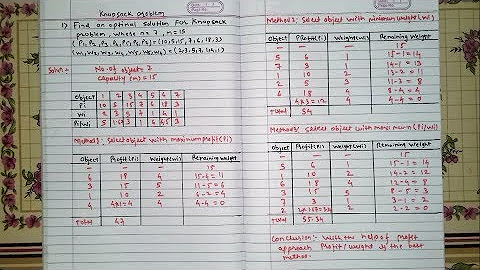 Knapsack problem
1) Find an optimal solution For Knapsack
problem, where n = 7, m = 15
(P1, P2, P3, P4, P5, P6, P7) = (10, 5, 15, 7, 6, 18, 3)
(w1, w2, w3, w4, w5, w6, w7) = (2, 3, 5, 7, 1, 4, 1)
Soln:- No. of object = 7
Capacity (m) = 15
Object 1 2 3 4 5 6 7
Pi 10 5 15 7 6 18 3
Wi 2 3 5 7 1 4 1
Pi/wi 5 1.67 3 1 6 4.5 3
Method 1: Select object with maximum profit (Pi)
Object Profit(Pi) Weight(wi) Remaining weight
- - - 15
6 18 4 15-4 = 11
3 15 5 11-5 = 6
1 10 2 6-2 = 4
4 4x1 = 4 4 4-4 = 0
Total 47
Method 2: Select object with minimum weight (wi)
Object Profit(Pi) Weight(wi) Remaining Weight
- - - 15
5 6 1 15-1 = 14
7 3 1 14-1 = 13
1 10 2 13-2 = 11
2 5 3 11-3 = 8
6 18 4 8-4 = 4
4x3 = 12 4 4-4 = 0
Total 54
Method 3: Select object with maximum (Pi/wi)
Object Profit(Pi) Weight(wi) Remaining Weight
- - - 15
5 6 1 15-1 = 14
1 10 2 14-2 = 12
6 18 4 12-4 = 8
3 15 5 8-5 = 3
7 3 1 3-1 = 2
2 2 2-2 = 0
Total 55.34
Conclusion:- With the help of profit
approach Profit/weight is the best
method.